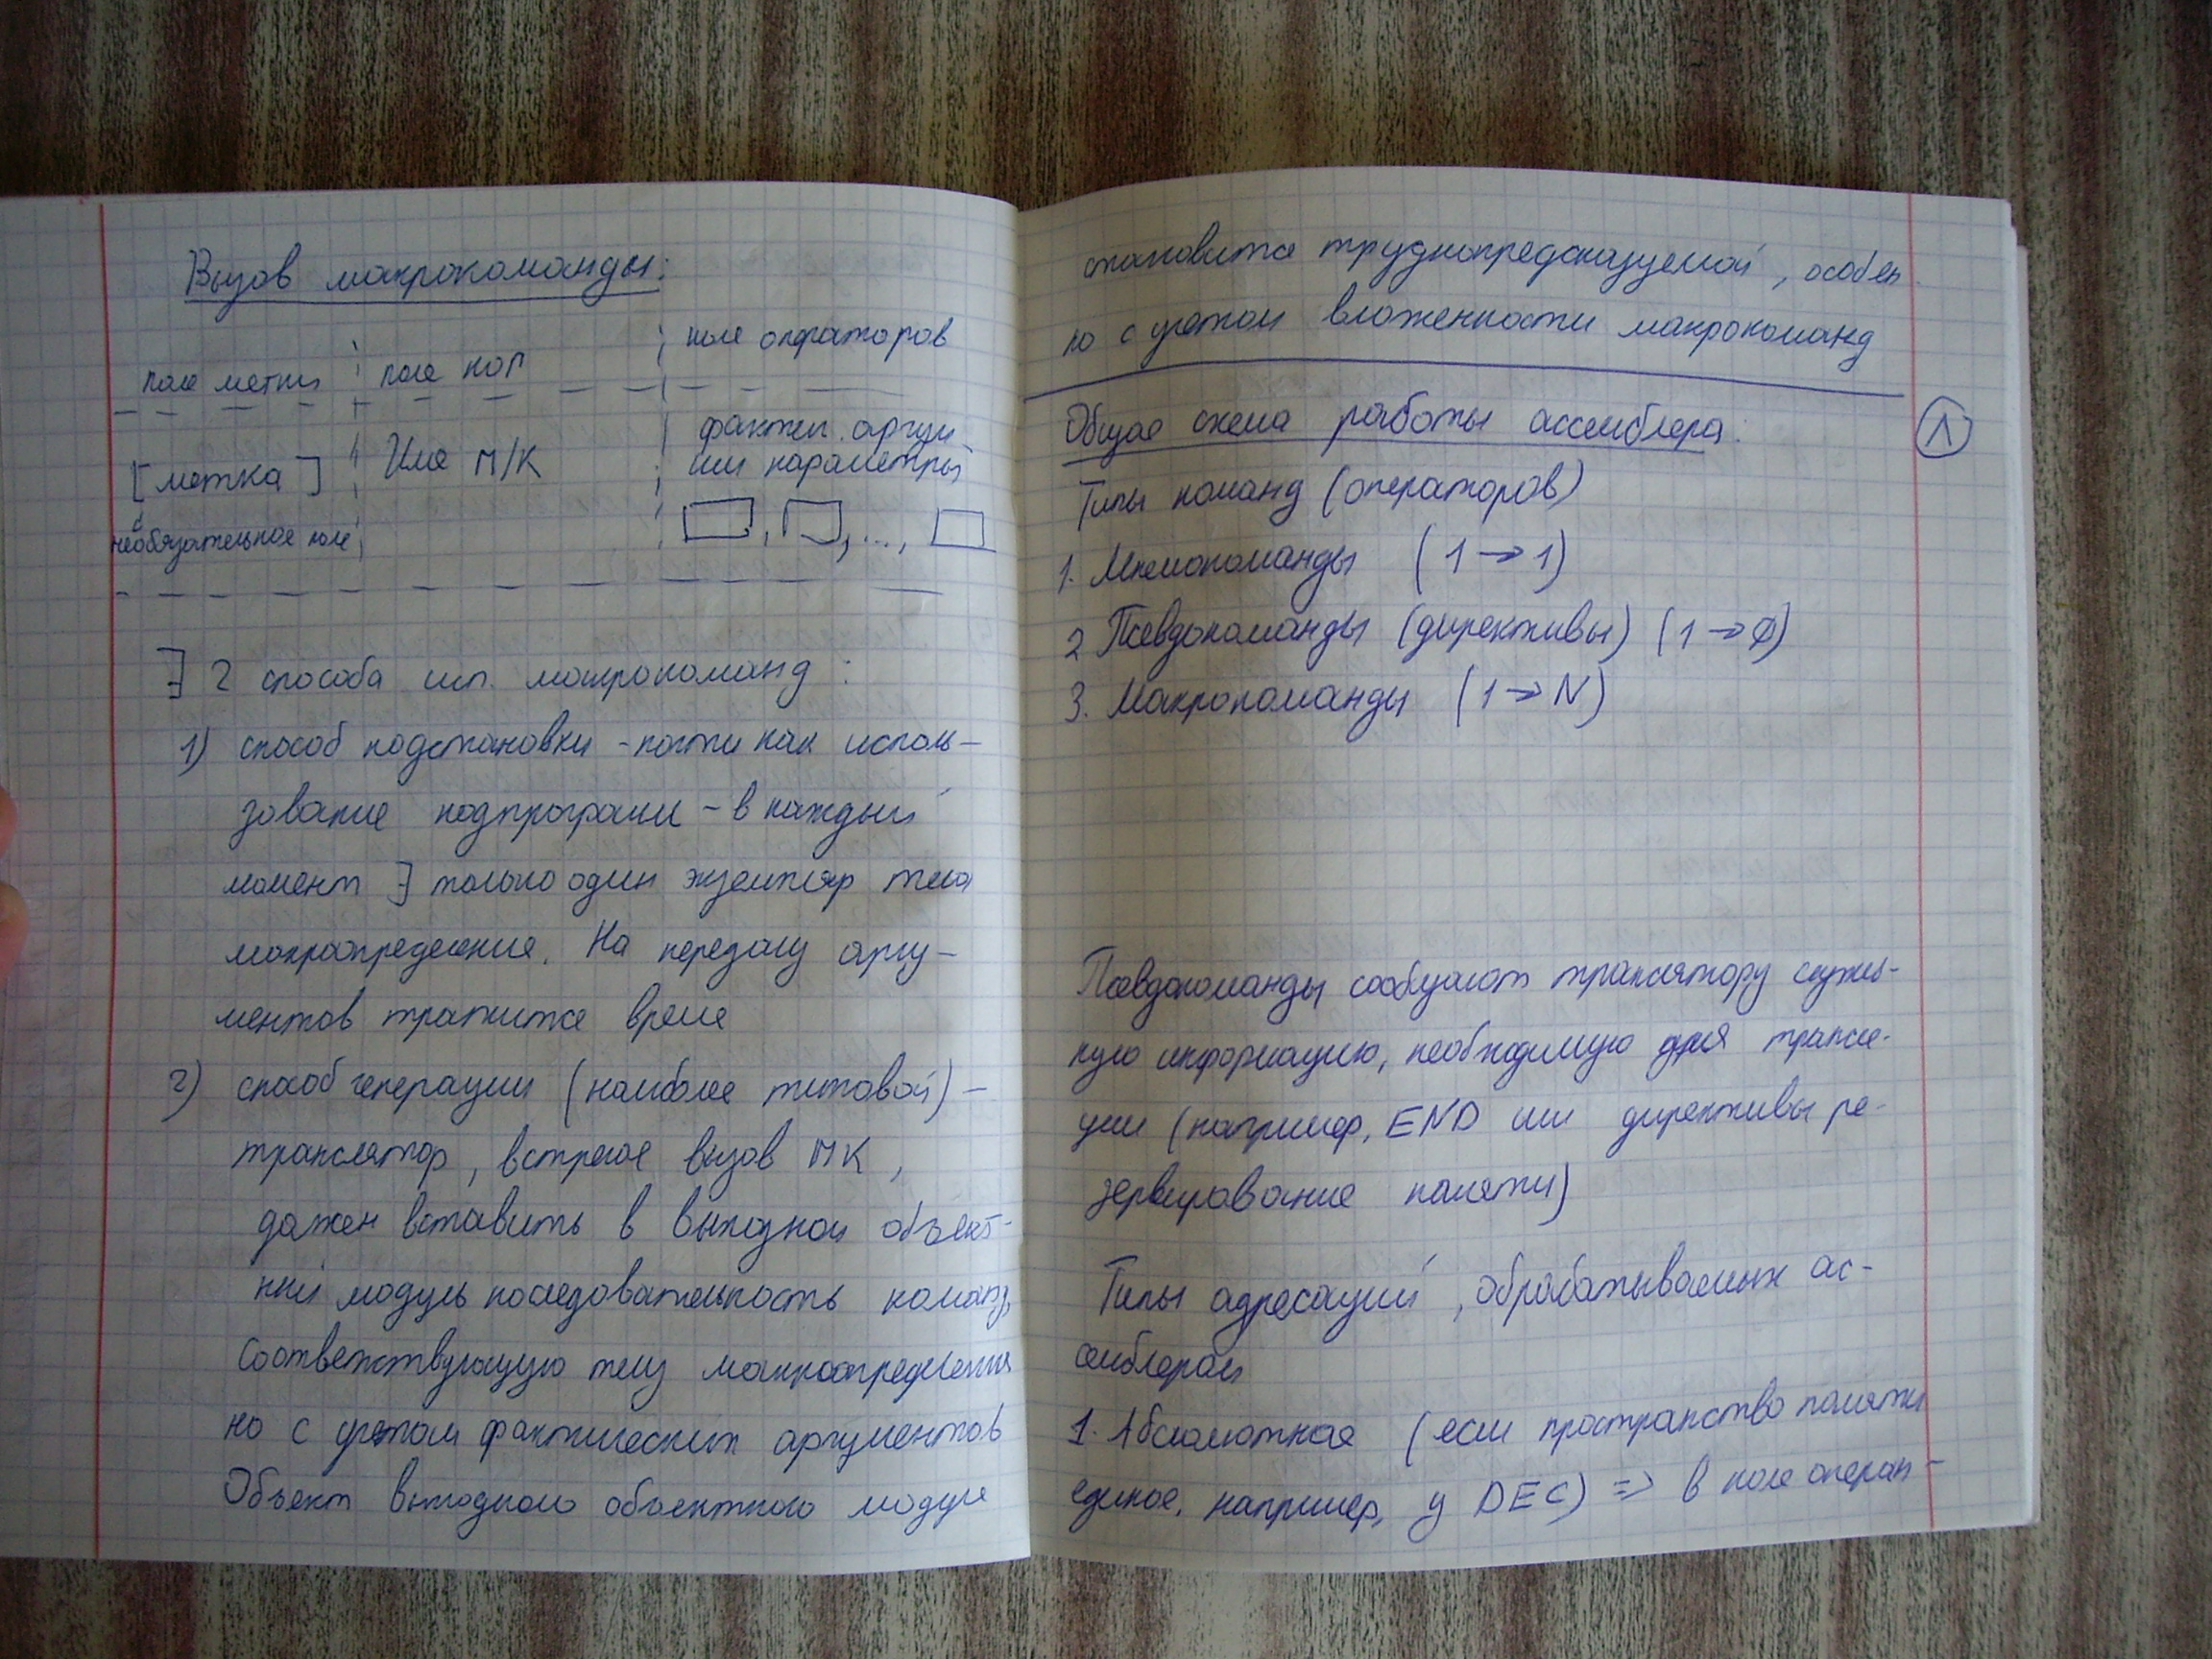 Вызов макрокоманды:
поле метки поле КОП поле операторов
[метка] Имя М/К фактич. аргум.
или параметры
необязательное поле , , ..., 
∃ 2 способа исп. макрокоманд:
1) способ подстановки - почти как исполь-
зование подпрограмм - в каждый
момент ∃ только один экземпляр тела
макроопределения. На передачу аргу-
ментов тратится время
2) способ генерации (наиболее типовой) -
транслятор, встречая вызов МК,
должен вставить в выходной объект-
ный модуль последовательность команд,
соответствующую телу макроопределения
но с учетом фактических аргументов
Объект выходного объектного модуля
становится труднопредсказуемой, особен
но с учетом вложенности макрокоманд
Общая схема работы ассемблера: Л
Типы команд (операторов)
1. Мнемокоманды (1 → 1)
2 Псевдокоманды (директивы) (1 → ∅)
3. Макрокоманды (1 → N)
Псевдокоманды сообщают транслятору служеб-
ную информацию, необходимую для трансля-
ции (например, END или директивы ре-
зервирование памяти)
Типы адресаций, обрабатываемых ас-
семблером
1. Абсолютная (если пространство памяти
единое, например, у DEC) => в поле операн-